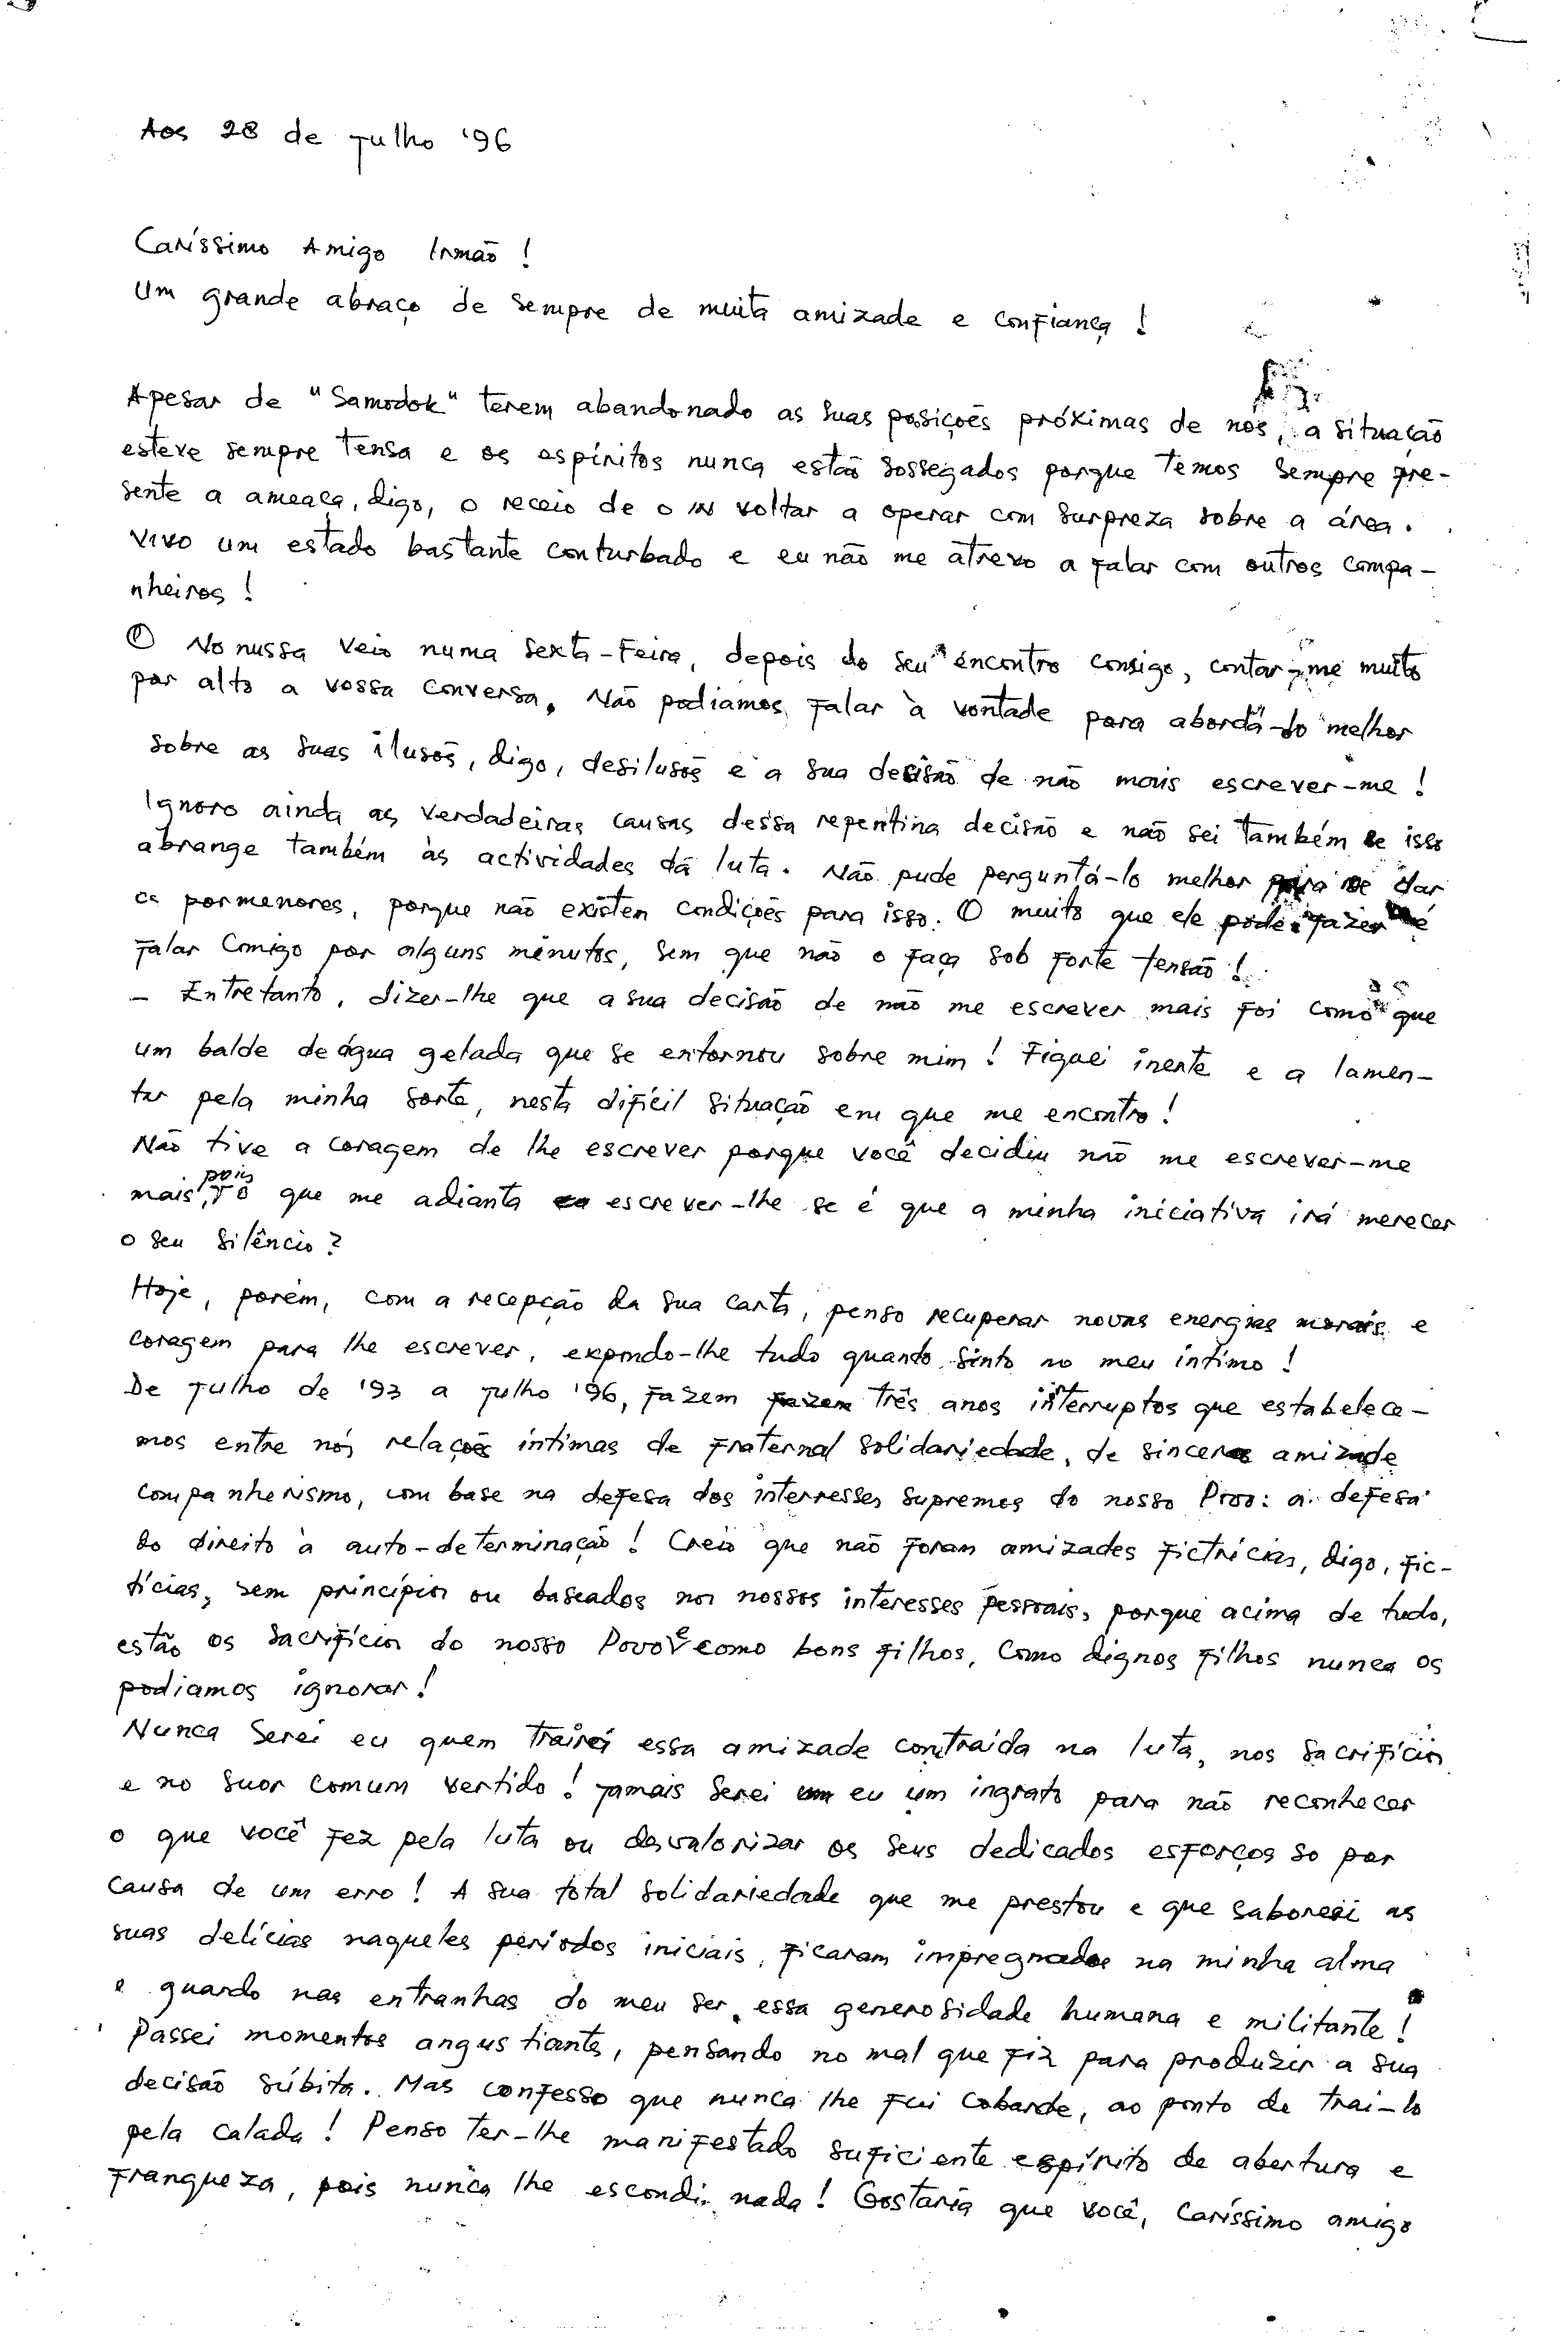 Aos 28 de julho '96
Caríssimo Amigo Irmão !
Um grande abraço de sempre de muita amizade e confiança !
Apesar de "Samodok" terem abandonado as suas posições próximas de nós, a situação
esteve sempre tensa e os espíritos nunca estão sossegados porque temos sempre pre-
sente a ameaça, digo, o receio de o IN voltar a operar com surpreza sobre a área.
Vivo um estado bastante conturbado e eu não me atrevo a falar com outros compa-
nheiros !
O Nonussa veio numa sexta-feira, depois do seu encontro consigo, contar-me muito
por alto a vossa conversa. Não podiamos falar à vontade para abordá-lo melhor
sobre as suas ilusões, digo, desilusões e a sua decisão de não mais escrever-me !
Ignoro ainda as verdadeiras causas dessa repentina decisão e não sei também se isso
abrange também às actividades da luta. Não pude perguntá-lo melhor para me dar
os pormenores, porque não existem condições para isso. O muito que ele pode fazer é
falar comigo por alguns minutos, sem que não o faça sob forte tensão !
- Entretanto, dizer-lhe que a sua decisão de não me escrever mais foi como que
um balde de água gelada que se entornou sobre mim ! Fiquei inerte e a lamen-
tar pela minha sorte, nesta difícil situação em que me encontro !
Não tive a coragem de lhe escrever porque você decidiu não me escrever-me
mais, pois o que me adianta escrever-lhe se é que a minha iniciativa irá merecer
o seu silêncio ?
Hoje, porém, com a recepção da sua carta, penso recuperar novas energias morais e
coragem para lhe escrever, expondo-lhe tudo quanto sinto no meu íntimo !
De julho de '93 a julho '96, fazem fazem três anos interruptos que estabelece-
mos entre nós relações íntimas de fraternal solidariedade, de sincera amizade
companherismo, com base na defesa dos interresses supremos do nosso Povo: a defesa
do direito à auto-determinação ! Creio que não foram amizades fictrícias, digo, fic-
tícias, sem princípios ou baseados nos nossos interesses pessoais, porque acima de tudo,
estão os sacrifícios do nosso Povo e como bons filhos, como dignos filhos nunca os
podiamos ignorar !
Nunca serei eu quem trairei essa amizade contraída na luta, nos sacrifícios
e no suor comum vertido ! Jamais serei um eu um ingrato para não reconhecer
o que você fez pela luta ou desvalorizar os seus dedicados esforços so por
causa de um erro ! A sua total solidariedade que me prestou e que saboreei as
suas delícias naqueles períodos iniciais, ficaram impregnados na minha alma
e guardo nas entranhas do meu ser, essa generosidade humana e militante !
Passei momentos angustiantes, pensando no mal que fiz para produzir a sua
decisão súbita. Mas confesso que nunca lhe fui cobarde, ao ponto de trai-lo
pela calada ! Penso ter-lhe manifestado suficiente espírito de abertura e
franqueza, pois nunca lhe escondi nada ! Gostaria que você, caríssimo amigo